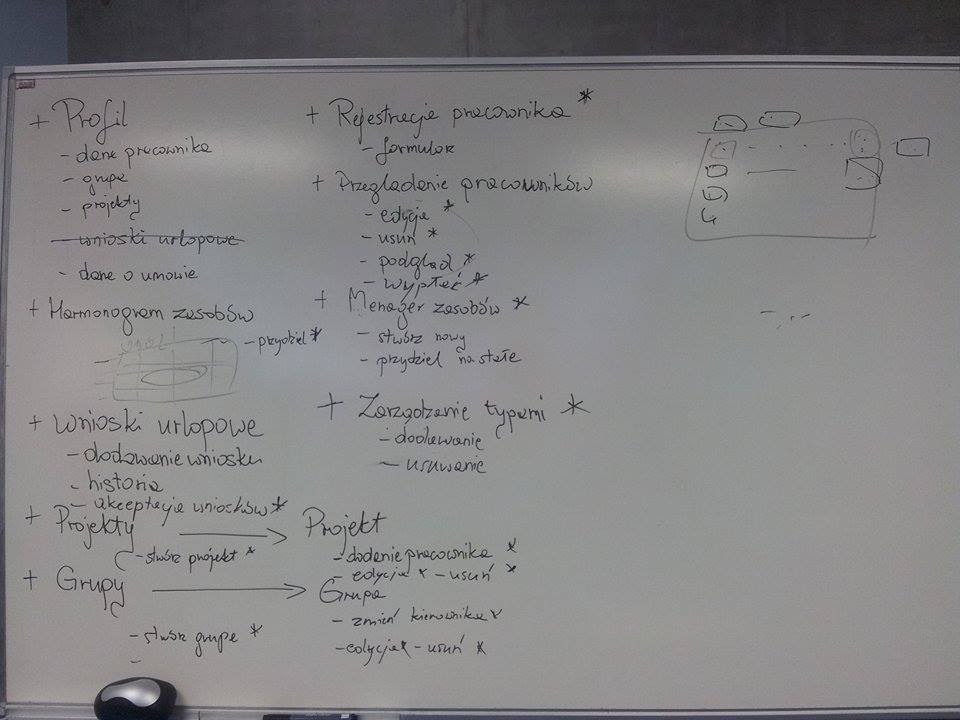 + Profil
- dane pracownika
- grupa
- projekty
- wnioski urlopowe
- dane o umowie
+ Harmonogram zasobów
- przydziel *
+ Wnioski urlopowe
- dodawanie wniosku
- historia
- akceptacja wniosków *
+ Projekty
- stwórz projekt *
+ Grupy
- stwórz grupę *
-
+ Rejestracja pracownika *
- formularz
+ Przeglądanie pracowników
- edycja *
- usuń *
- podgląd *
- wypłać *
+ Menager zasobów *
- stwórz nowy
- przydziel na stałe
+ Zarządzanie typami *
- dodawanie
- usuwanie
Projekt
- dodanie pracownika *
- edycja * - usuń *
Grupa
- zmień kierownika *
- edycja * - usuń *